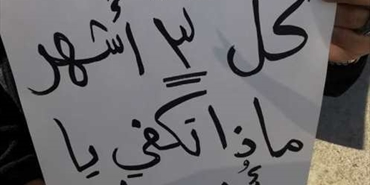 كل ٣ أشهر
ماذا تكفي يا